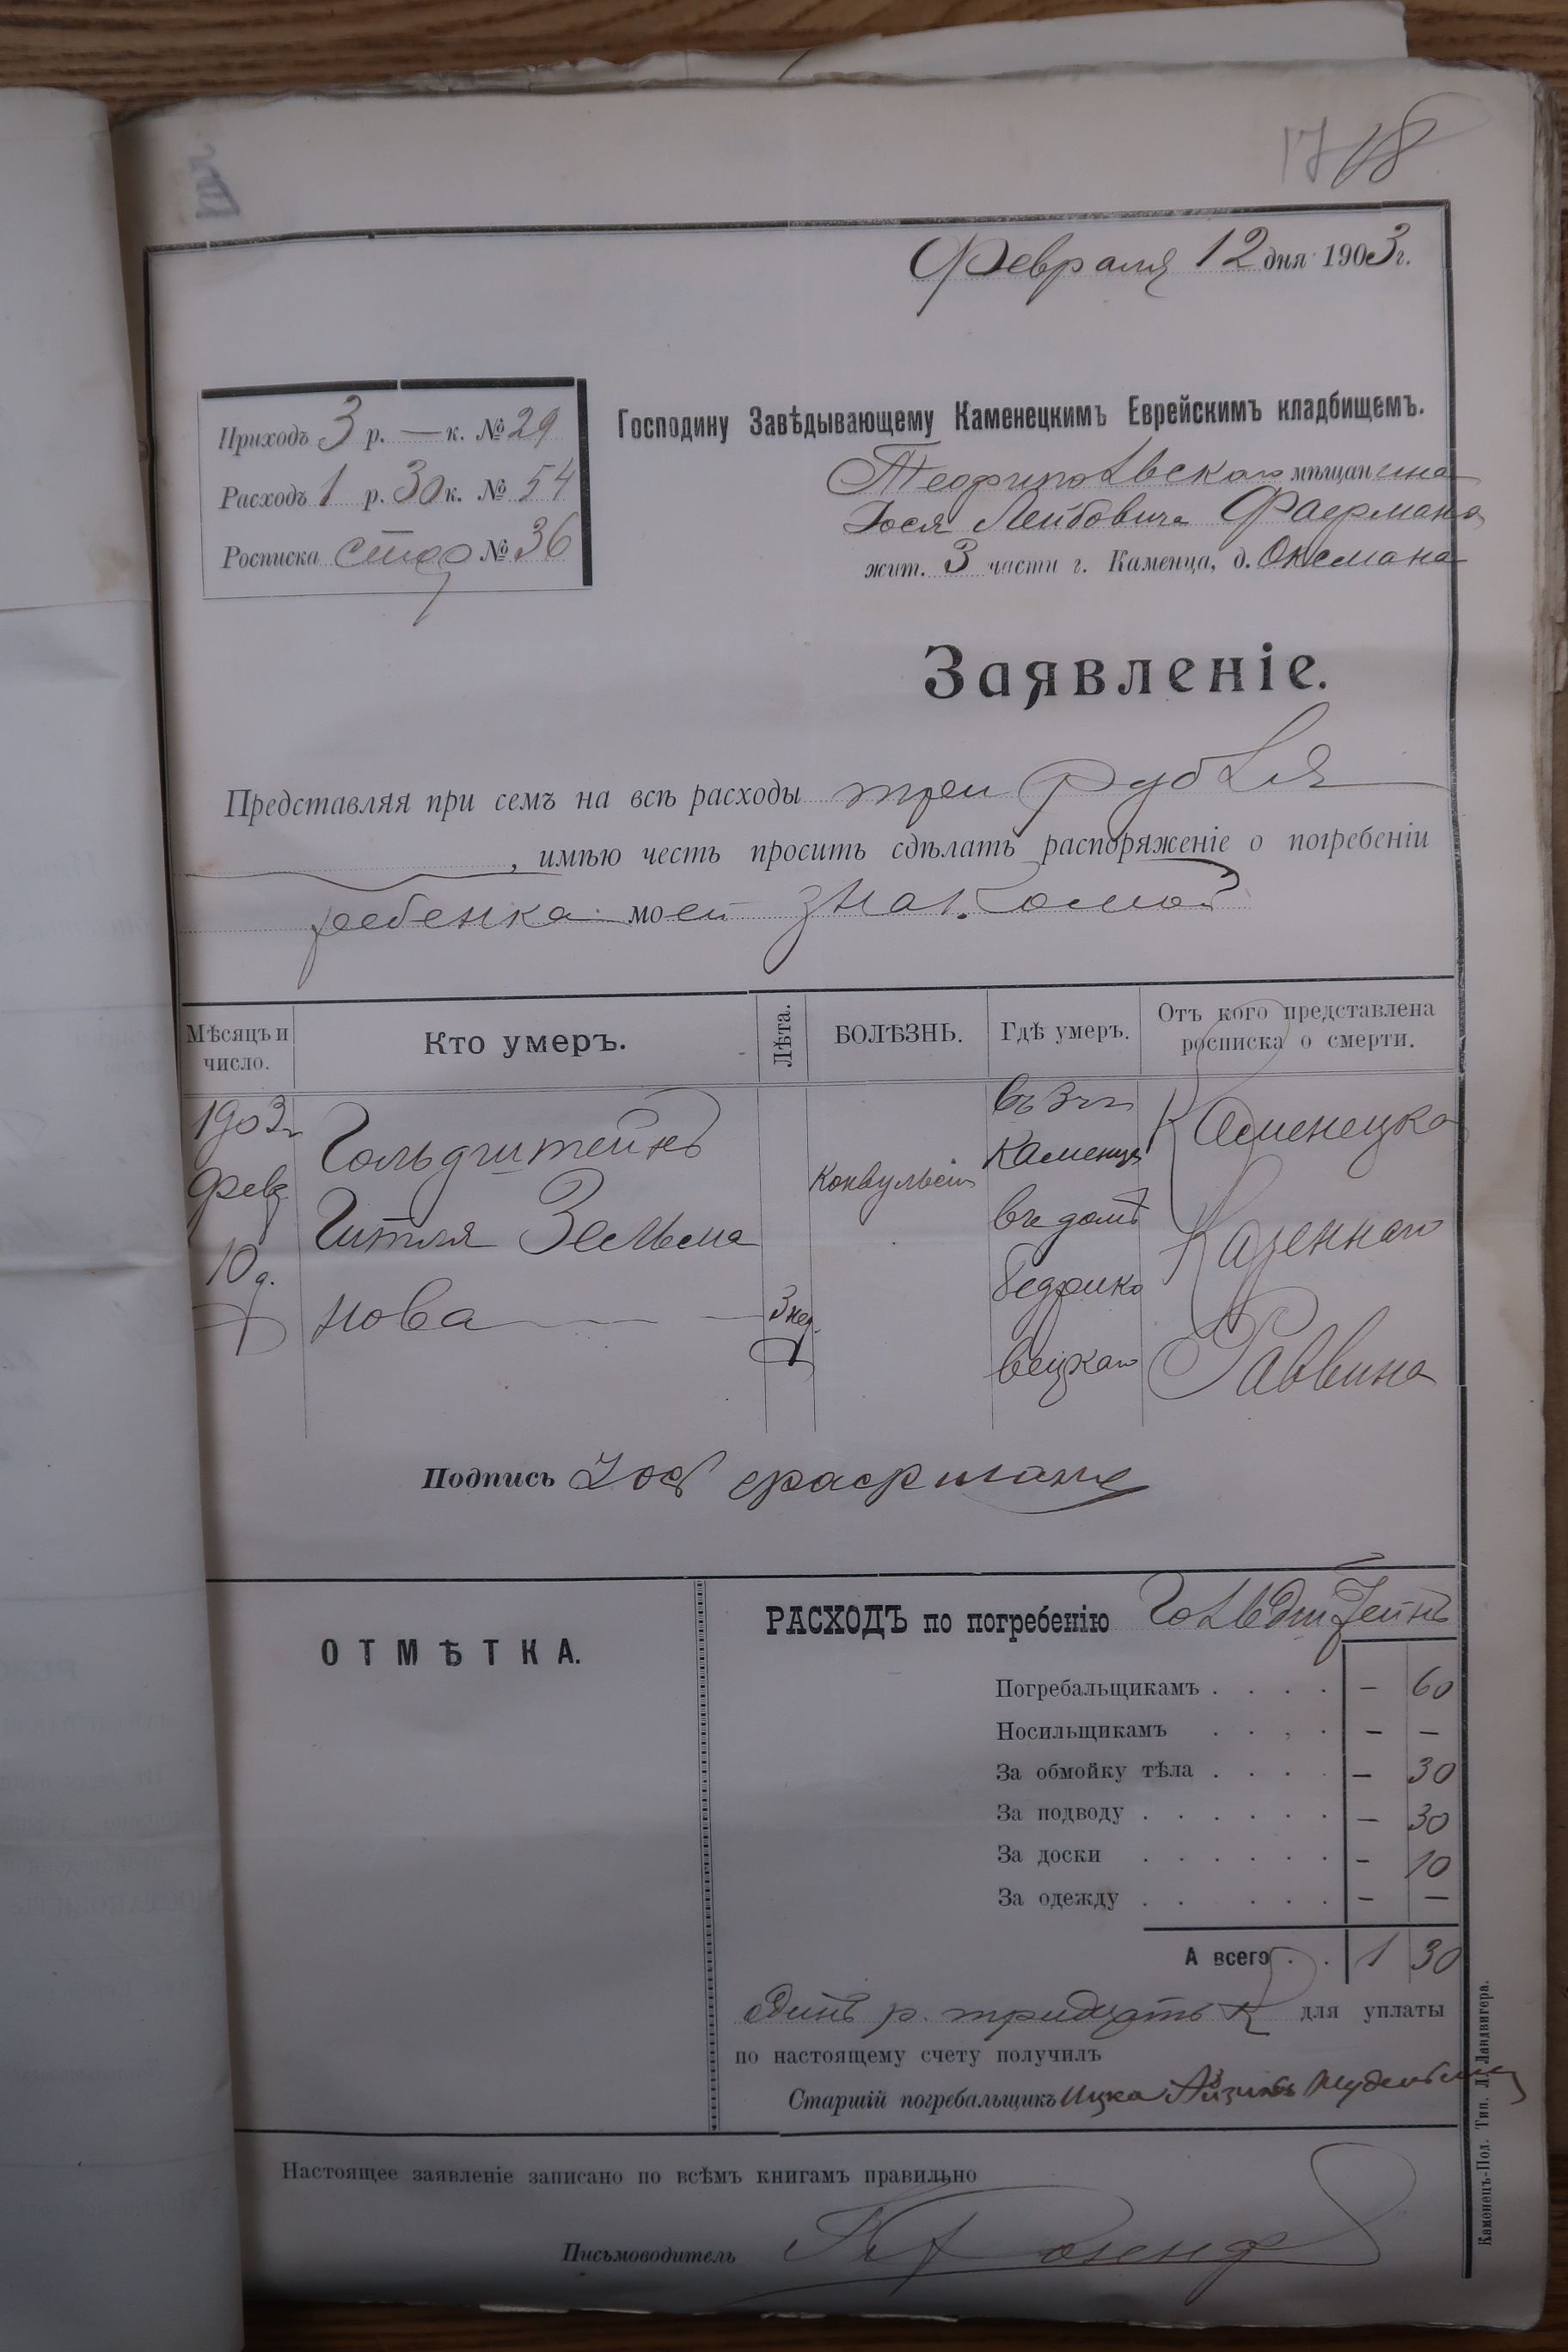 17 18
Февраля 12 дня 1903 г.
Приходъ 3 р. — к. № 29
Расходъ 1 р. 30 к. № 54
Росписка № 36
Господину Завѣдывающему Каменецкимъ Еврейскимъ кладбищемъ.
Теофипольскаго мѣщанина
Іося Лейбовича Фаермана
жит. 3 части г. Каменца, д. Оксмана
Заявленіе.
Представляя при семъ на всѣ расходы три рубля
, имѣю честь просить сдѣлать распоряженіе о погребеніи
ребенка моей знакомой
Мѣсяцъ и число.
Кто умеръ.
Лѣта.
БОЛѢЗНЬ.
Гдѣ умеръ.
Отъ кого представлена росписка о смерти.
1903 г
Февр
10 д.
Гольдштейнъ
Гитля Зельма
нова
3 нед.
Конвульсіи
въ 3 ч
Каменца
въ домѣ
бедрико
вецкаго
Каменецкаго
Казеннаго
Раввина
Подпись Іось фаерманъ
ОТМѢТКА.
РАСХОДЪ по погребенію Гольдштейнъ
Погребальщикамъ . . . . — 60
Носильщикамъ . . . . — —
За обмойку тѣла . . . . — 30
За подводу . . . . . . — 30
За доски . . . . . . — 10
За одежду . . . . . — —
А всего . . 1 30
Одинъ р. тридцать к для уплаты
по настоящему счету получилъ
Старшій погребальщикъ Ицка Айзикъ
Настоящее заявленіе записано по всѣмъ книгамъ правильно
Письмоводитель
Каменецъ-Под. Тип. Л. Ландвигера.